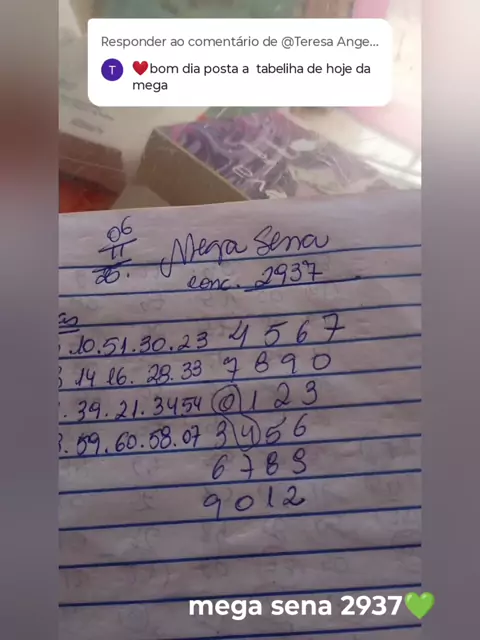 Responder ao comentário de @Teresa Ange...
T
❤️bom dia posta a tabeliha de hoje da
mega
06
11
25.
Mega Sena
conc. 2937
.10.51.30.23 4 5 6 7
14 16. 28. 33 7 8 9 0
. 39. 21. 3454 0 1 2 3
. 59. 60. 58. 07 3 4 5 6
6 7 8 9
9 0 1 2
mega sena 2937💚